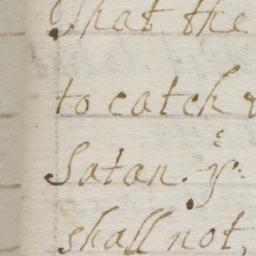 What the
to catch
Satan. yᵉ
shall not,